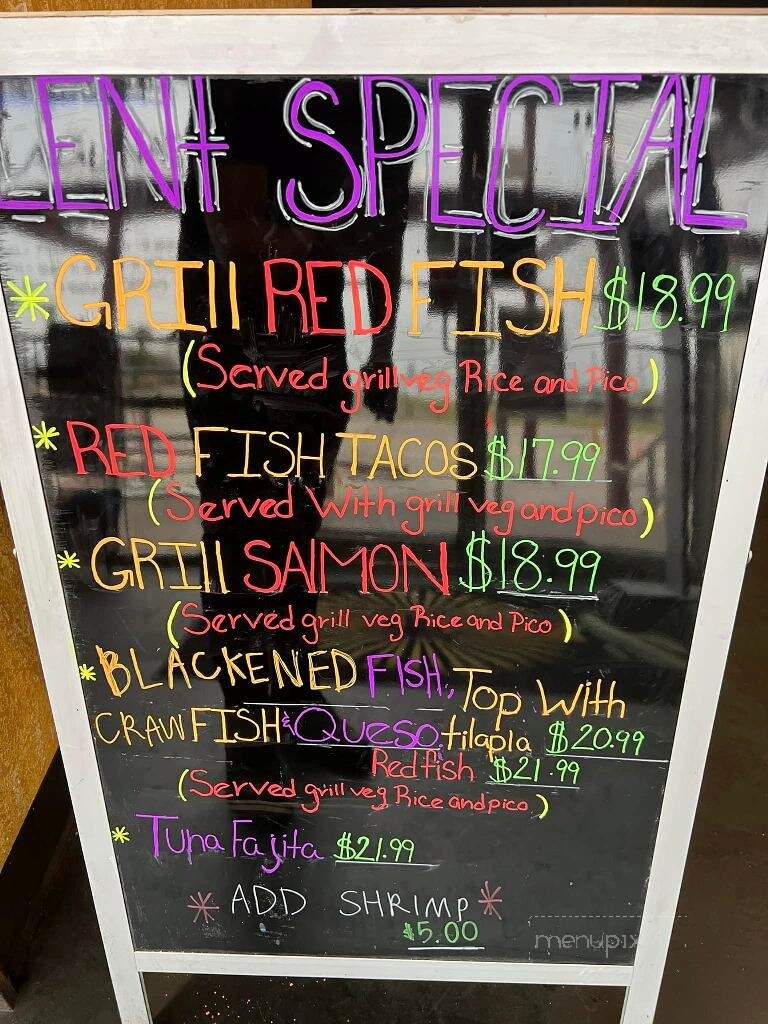 LENt SPECIAL
* GRIll RED FISH $18.99
(Served grill veg Rice and Pico)
* RED FISH TACOS $17.99
(Served With grill veg and pico)
* GRIll SAlMON $18.99
(Served grill veg Rice and Pico)
* BLACKENED FISH, Top With
CRAWFISH & Queso tilapia $20.99
Redfish $21.99
(Served grill veg Rice and pico)
* Tuna Fajita $21.99
* ADD SHRIMP *
$5.00
menupix